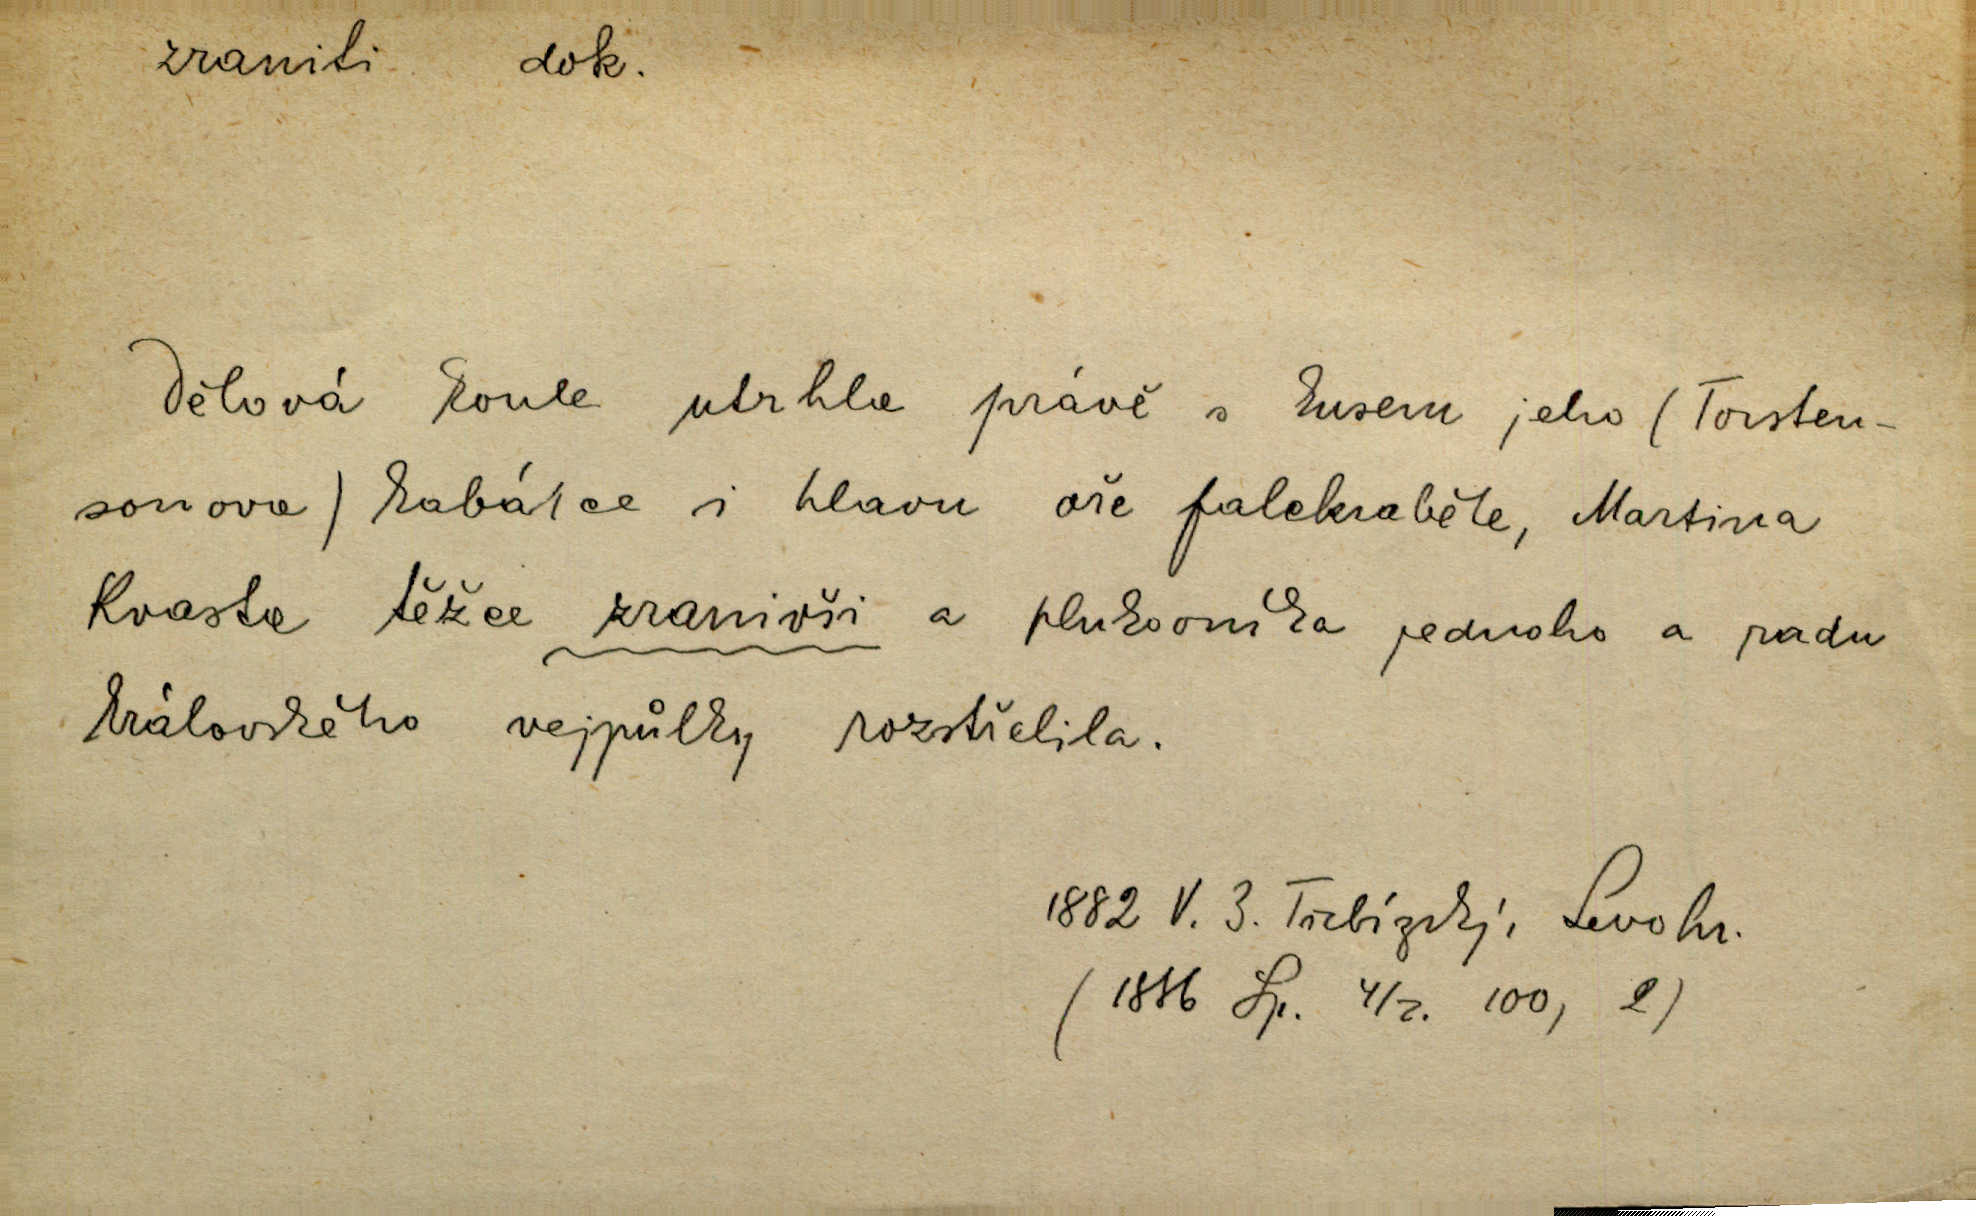 zraniti dok.
Dělová koule utrhla právě s kusem jeho (Torsten-
sonova) kabátce i hlavu oře falckraběte, Martina
Kvasta těžce zranivši a plukovníka jednoho a radu
královského vejpůlky rozstřelila.
1882 V. B. Třebízský, Levohr.
(1886 Sp. 4/2. 100, 2)